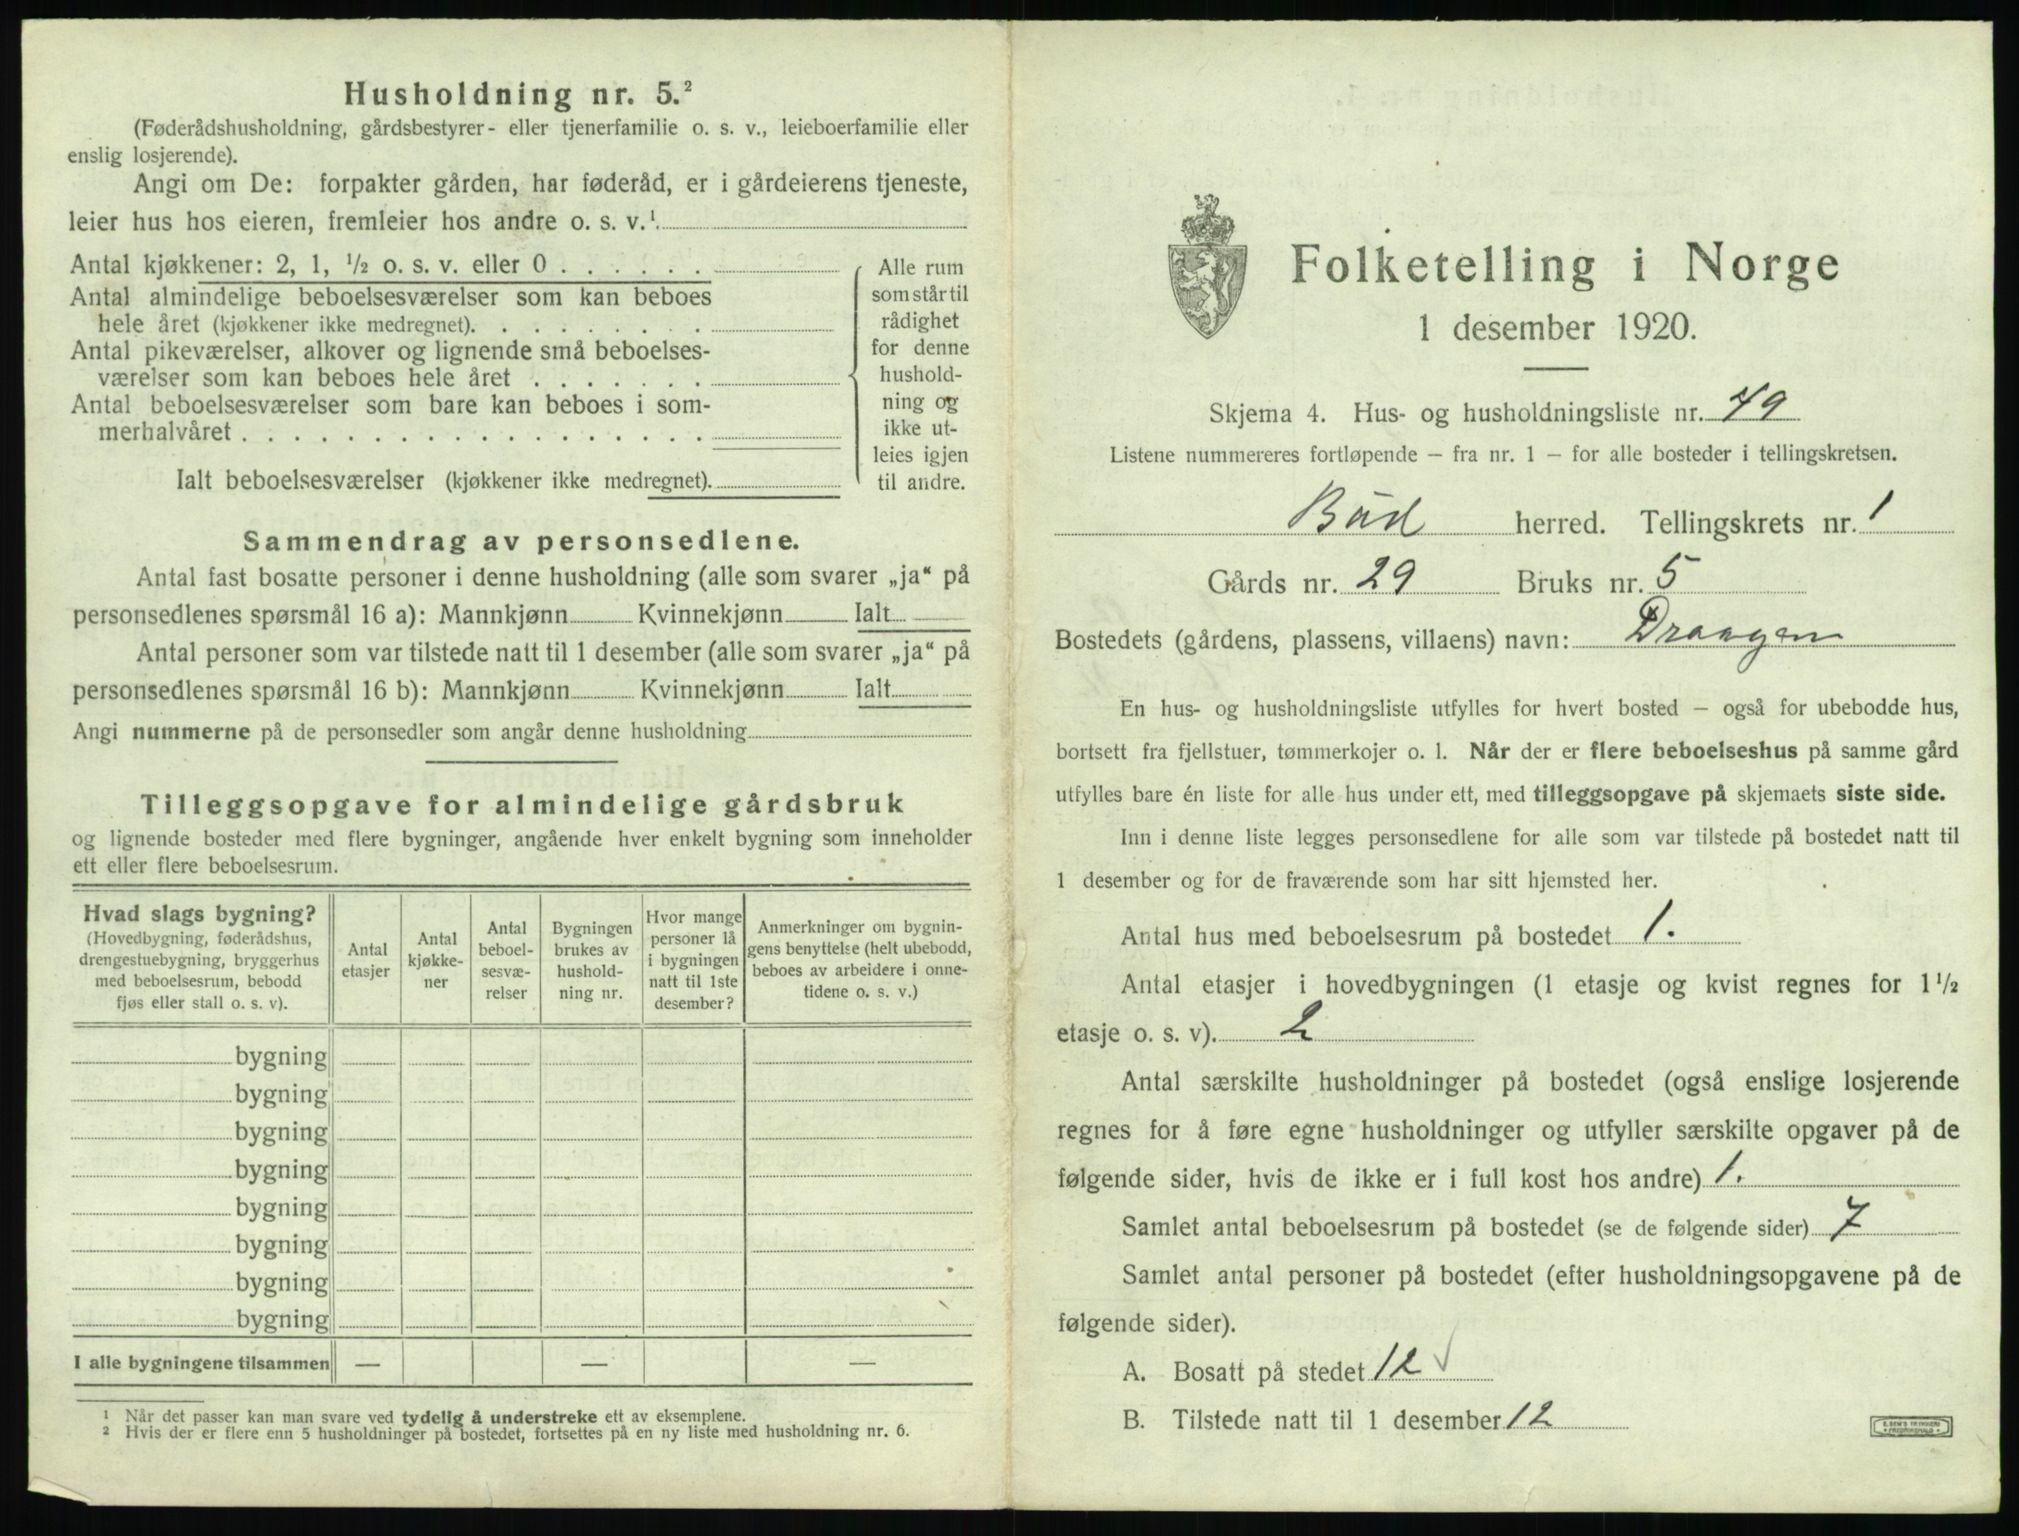 Husholdning nr. 5.²
(Føderådshusholdning, gårdsbestyrer- eller tjenerfamilie o. s. v., leieboerfamilie eller
enslig losjerende).
Angi om De: forpakter gården, har føderåd, er i gårdeierens tjeneste,
leier hus hos eieren, fremleier hos andre o. s. v.¹
Antal kjøkkener: 2, 1, ½ o. s. v. eller 0 . . . . . .
Antal almindelige beboelsesværelser som kan beboes
hele året (kjøkkener ikke medregnet). . . . . . . . .
Antal pikeværelser, alkover og lignende små beboelses-
værelser som kan beboes hele året . . . . . . .
Antal beboelsesværelser som bare kan beboes i som-
merhalvåret . . . . . . . . . . . . . . . . . .
Ialt beboelsesværelser (kjøkkener ikke medregnet).
Alle rum
som står til
rådighet
for denne
hushold-
ning og
ikke ut-
leies igjen
til andre.
Sammendrag av personsedlene.
Antal fast bosatte personer i denne husholdning (alle som svarer „ja“ på
personsedlenes spørsmål 16 a): Mannkjønn Kvinnekjønn Ialt
Antal personer som var tilstede natt til 1 desember (alle som svarer „ja“ på
personsedlenes spørsmål 16 b): Mannkjønn Kvinnekjønn Ialt
Angi nummerne på de personsedler som angår denne husholdning
Tilleggsopgave for almindelige gårdsbruk
og lignende bosteder med flere bygninger, angående hver enkelt bygning som inneholder
ett eller flere beboelsesrum.
Hvad slags bygning?
(Hovedbygning, føderådshus,
drengestuebygning, bryggerhus
med beboelsesrum, bebodd
fjøs eller stall o. s. v).
Antal
etasjer
Antal
kjøkke-
ner
Antal
beboel-
sesvæ-
relser
Bygningen
brukes av
hushold-
ning nr.
Hvor mange
personer lå
i bygningen
natt til 1ste
desember?
Anmerkninger om bygnin-
gens benyttelse (helt ubebodd,
beboes av arbeidere i onne-
tidene o. s. v.)
bygning
bygning
bygning
bygning
bygning
bygning
bygning
bygning
I alle bygningene tilsammen — — —
¹ Når det passer kan man svare ved tydelig å understreke ett av eksemplene.
² Hvis der er flere enn 5 husholdninger på bostedet, fortsettes på en ny liste med husholdning nr. 6.
Folketelling i Norge
1 desember 1920.
Skjema 4. Hus- og husholdningsliste nr. 49
Listene nummereres fortløpende — fra nr. 1 — for alle bosteder i tellingskretsen.
Bud herred. Tellingskrets nr. 1
Gårds nr. 29 Bruks nr. 5
Bostedets (gårdens, plassens, villaens) navn: Draagen
En hus- og husholdningsliste utfylles for hvert bosted — også for ubebodde hus,
bortsett fra fjellstuer, tømmerkojer o. l. Når der er flere beboelseshus på samme gård
utfylles bare én liste for alle hus under ett, med tilleggsopgave på skjemaets siste side.
Inn i denne liste legges personsedlene for alle som var tilstede på bostedet natt til
1 desember og for de fraværende som har sitt hjemsted her.
Antal hus med beboelsesrum på bostedet 1.
Antal etasjer i hovedbygningen (1 etasje og kvist regnes for 1½
etasje o. s. v). 2
Antal særskilte husholdninger på bostedet (også enslige losjerende
regnes for å føre egne husholdninger og utfyller særskilte opgaver på de
følgende sider, hvis de ikke er i full kost hos andre) 1.
Samlet antal beboelsesrum på bostedet (se de følgende sider) 7
Samlet antal personer på bostedet (efter husholdningsopgavene på de
følgende sider).
A. Bosatt på stedet 12 ✓
B. Tilstede natt til 1 desember 12